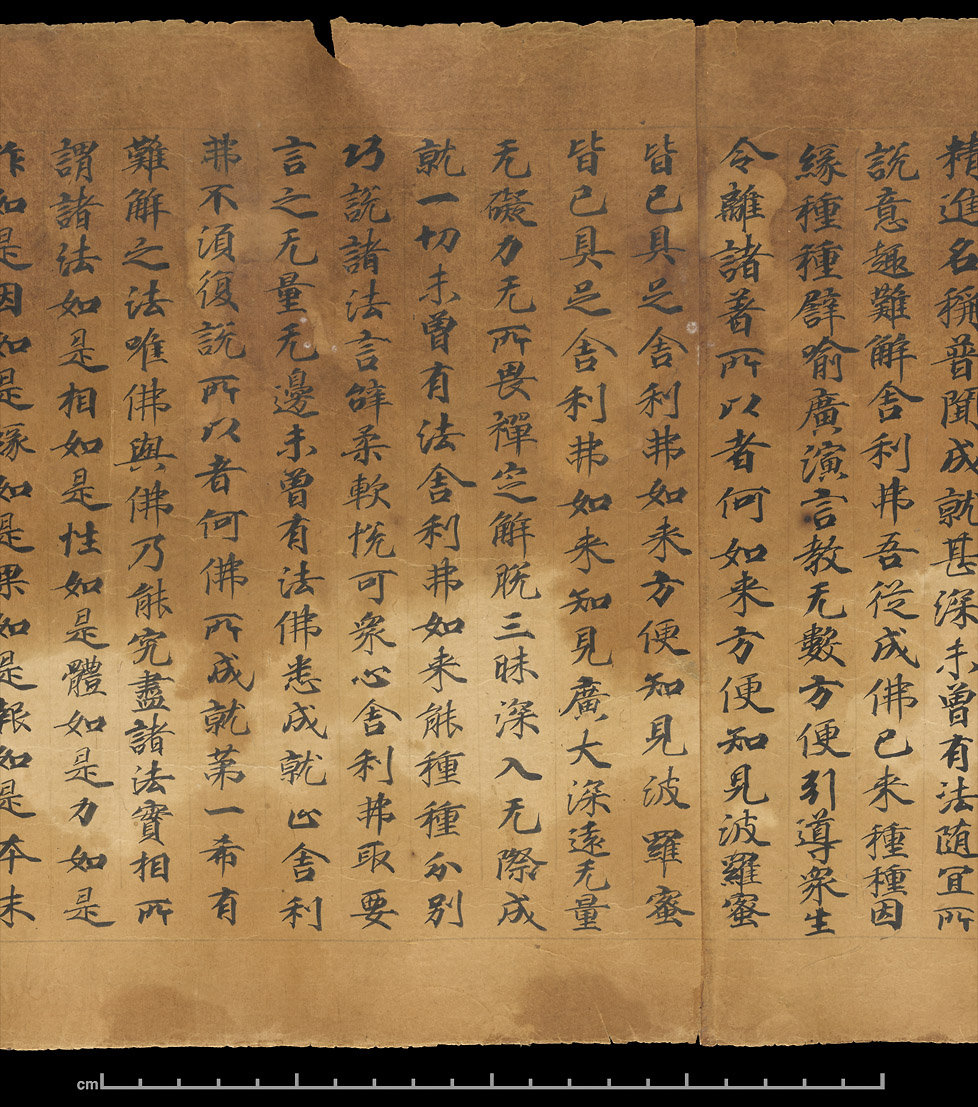 精進名稱普聞成就甚深未曾有法随冝所
説意趣難解舎利弗吾從成佛已来種種因
緣種種譬喻廣演言教无數方便引導衆生
令離諸著所以者何如来方便知見波羅蜜
皆已具足舎利弗如来方便知見波羅蜜
皆已具足舎利弗如来知見廣大深遠无量
无礙力无所畏禪定解脱三昧深入无際成
就一切未曾有法舎利弗如来能種種分別
巧説諸法言辝柔軟悅可衆心舎利弗取要
言之无量无邊未曾有法佛悉成就止舎利
弗不須復説所以者何佛所成就苐一希有
難解之法唯佛與佛乃能究盡諸法實相所
謂諸法如是相如是性如是體如是力如是
作如是因如是緣如是果如是報如是本末
cm